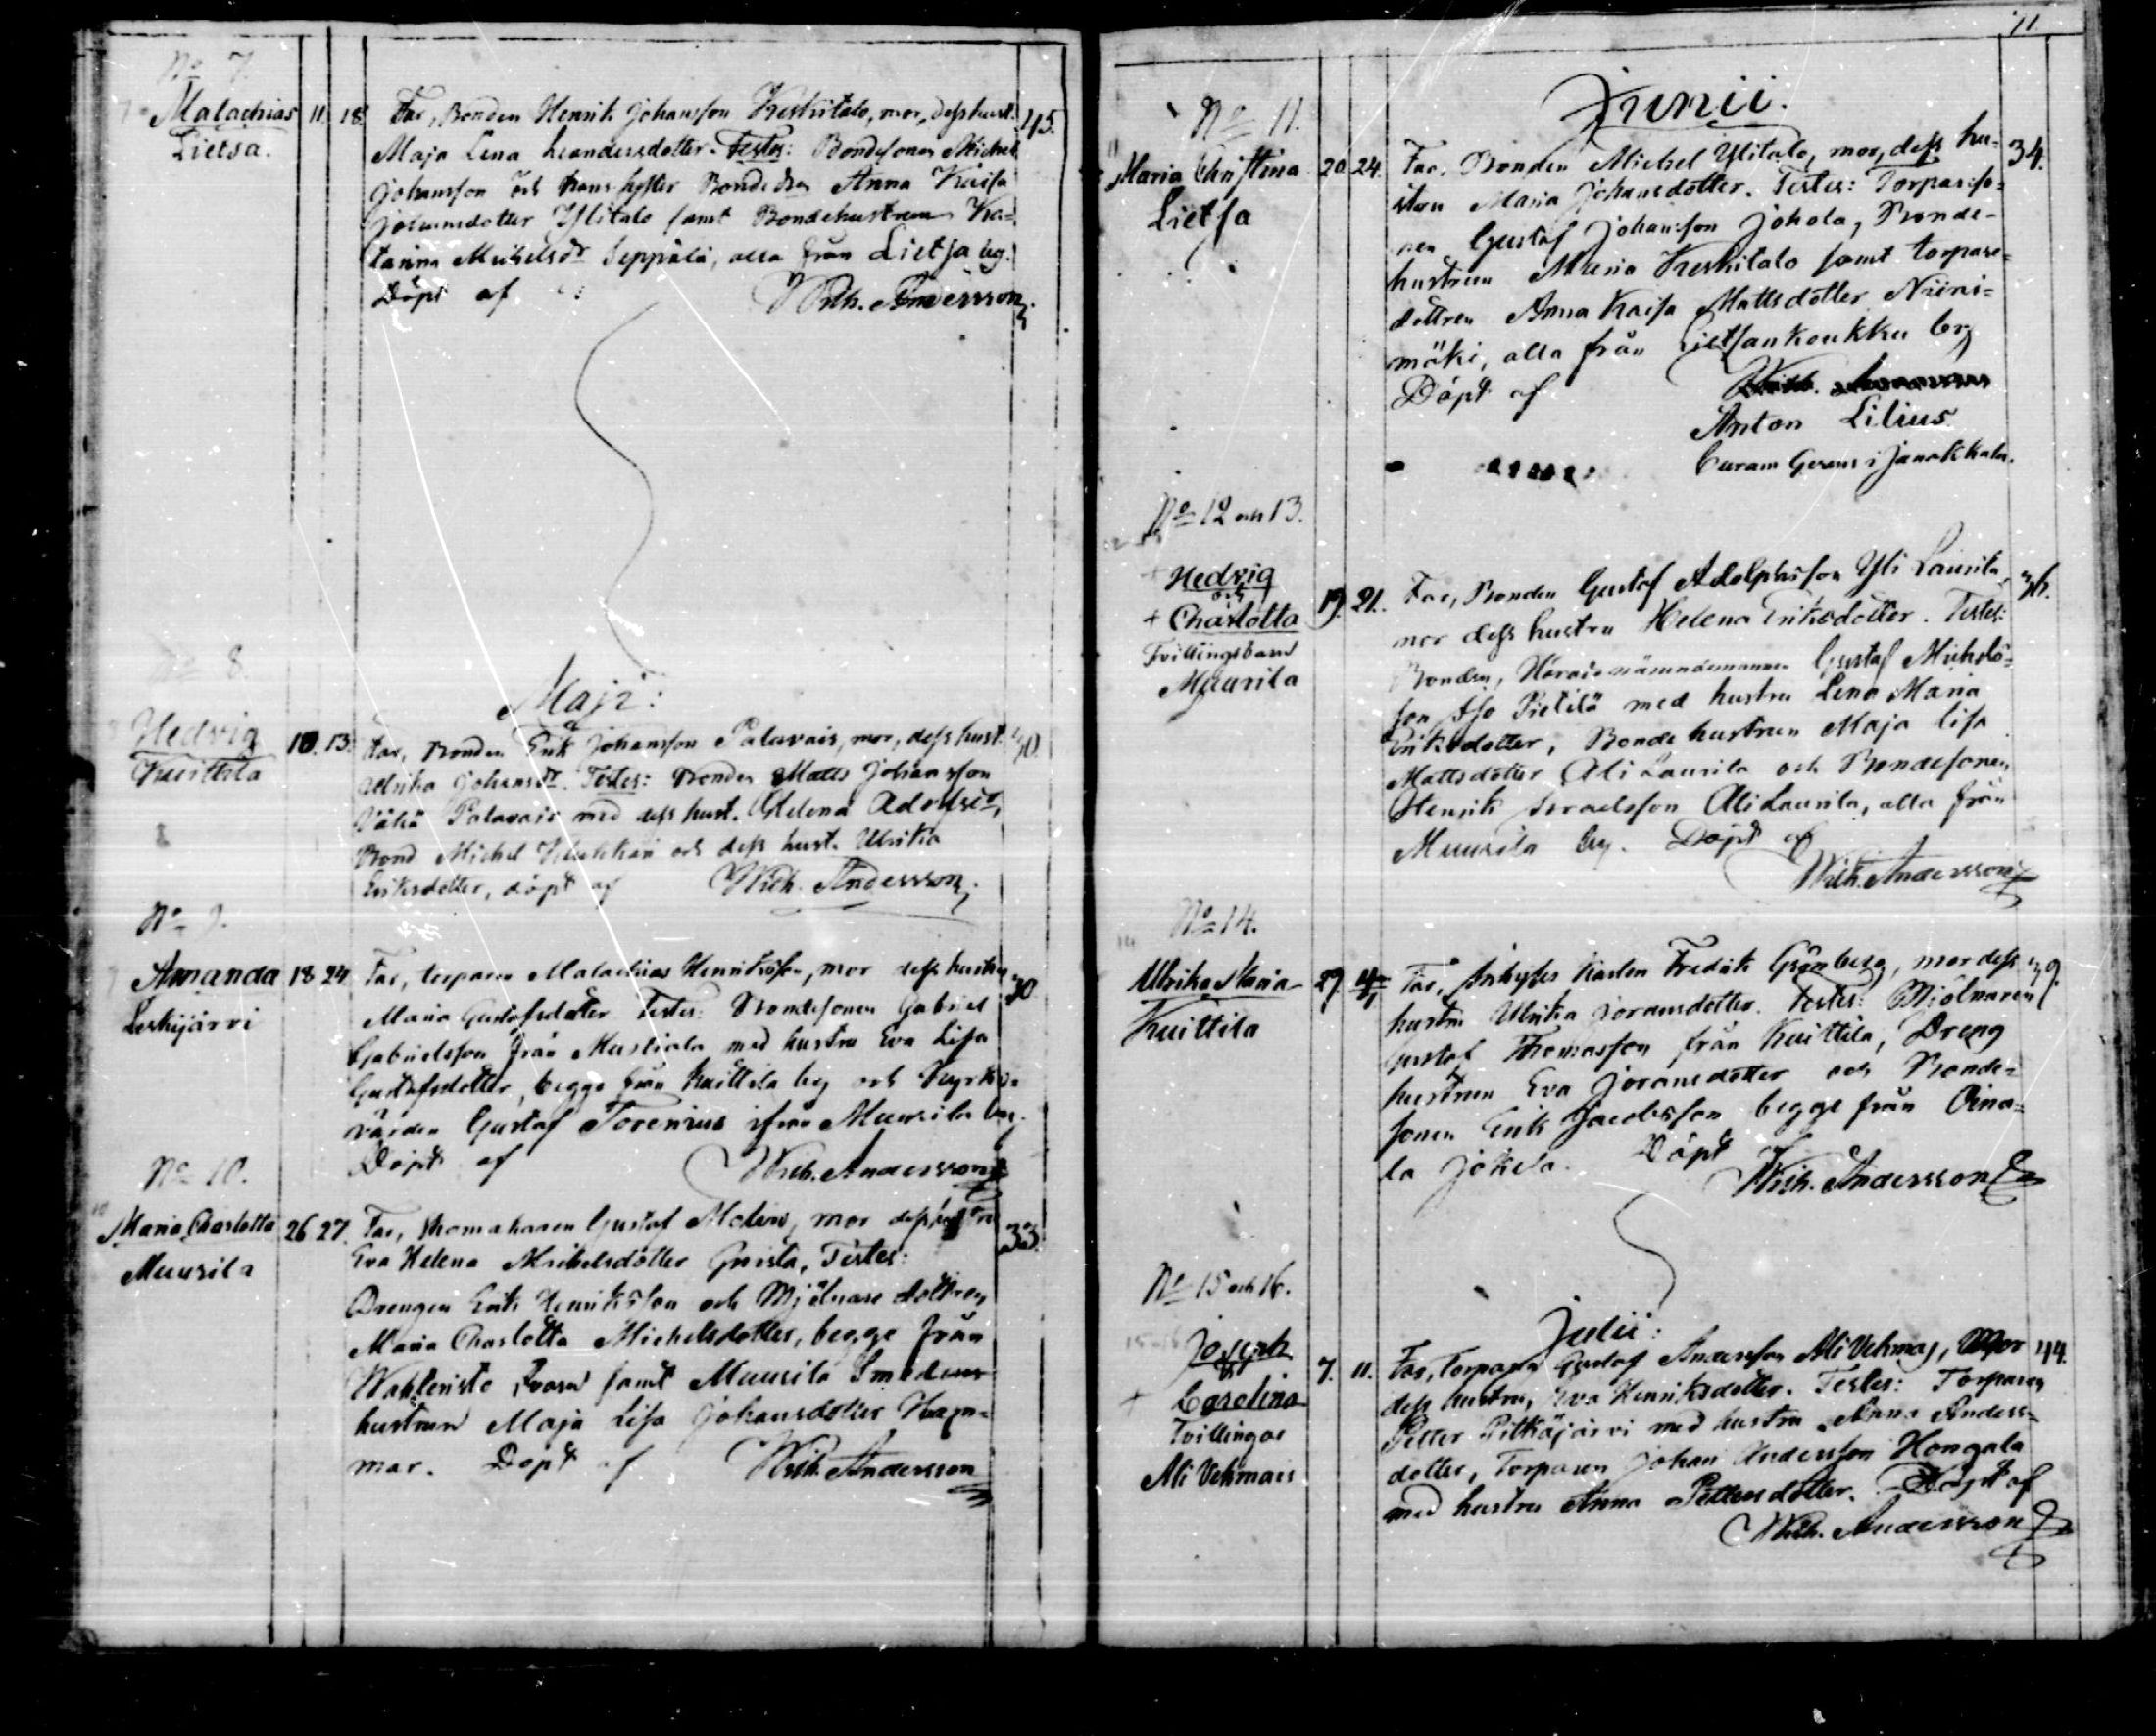 No 7.
Malachias 11. 18. Far, Bonden Henrik Johansson Keskitalo, mor, dess hust. 45.
Lietsa. Maja Lena Leandersdotter. Testes: Bondesonen Michel
Johansson och hans syster Bonde dra Anna Kaisa
Johansdotter Ylitalo samt Bondehustrun Ka-
tarina Michelsdr Seppälä, alla från Lietsa by.
Döpt af Wilh. Andersson.
No 8.
Maji:
Hedvig 10. 13. Far, Bonden Erik Johansson Palavais, mor, dess hust. 30.
Kuittila Ulrika Johansdr. Testes: Bonden Matts Johansson
Vähä Palavais med dess hust. Helena Adolfsdr,
Bond Michel och dess hust. Ulrika
Eriksdotter, döpt af Wilh. Andersson.
No 9.
Amanda 18 24 Far, torparen Malachias Henriksson, mor dess hustru 30
Leskijärvi Maria Gustafsdotter Testes: Bondesonen Gabriel
Gabrielsson från Mustiala med hustru Eva Lisa
Gustafsdotter, begge från Kuittila by och Kyrko-
värden Gustaf Torenius ifrån Muurila by.
Döpt af Wilh. Andersson
No 10.
Maria Charlotta 26 27. Far, Skomakaren Gustaf Molin, mor dess hustru 33.
Muurila Eva Helena Michelsdotter Testes:
Drengen Erik Henriksson och Mjölnare dottren
Maria Charlotta Michelsdotter, begge från
Wahteristo qvarn samt Muurila Smedens
hustrun Maja Lisa Johansdotter Ham-
mar. Döpt af Wilh. Andersson
11.
Junii.
No 11.
Maria Christina 20. 24. Far, Bonden Michel Ylitalo, mor, dess hu- 34.
Lietsa stru Maria Johansdotter. Testes: Torpareso-
nen Gustaf Johansson Jokola, Bonde-
hustrun Maria Keskitalo samt torpare-
dottren Anna Kaisa Mattsdotter Niini-
mäki, alla från Lietsankoukku by
Döpt af
Anton Lilius
Curam Gerens i Janakkala.
No 12 och 13.
Hedvig
och
+ Charlotta 19. 21. Far, Bonden Gustaf Adolphsson Yli Laurila,
Tvillingsbarn mor dess hustru Helena Eriksdotter. Testes:
Muurila Bonden, Häradsnämndemannen Gustaf Michels-
son Iso Pietilä med hustru Lena Maria
Eriksdotter, Bonde hustrun Maja Lisa
Mattsdotter Ali Laurila och Bondesonen
Henrik Israelsson Ali Laurila, alla från
Muurila by. Döpt af
Wilh. Andersson
No 14.
Ulrika Maria 29. Far, Inhyses Karlen Fredrik Grönberg, mor dess 39.
Kuittila hustru Ulrika Joransdotter. Testes: Mjölnaren
Gustaf Thomasson från Kuittila, Dreng
hustrun Eva Joransdotter och Bonde-
sonen Erik Jacobsson begge från Oina-
la Jokela. Döpt af
Wilh. Andersson
No 15 och 16.
Julii:
Joseph 7. 11. Far, Torparen Gustaf Andersson Ali Vehmais, Mor 44.
och
+ Carolina dess hustru, Eva Henriksdotter. Testes: Torparen
Tvillingar Petter Pitkäjärvi med hustru Anna Anders-
Ali Vehmais dotter, Torparen Johan Andersson Hongala
med hustru Anna Pettersdotter. Döpt af
Wilh. Andersson